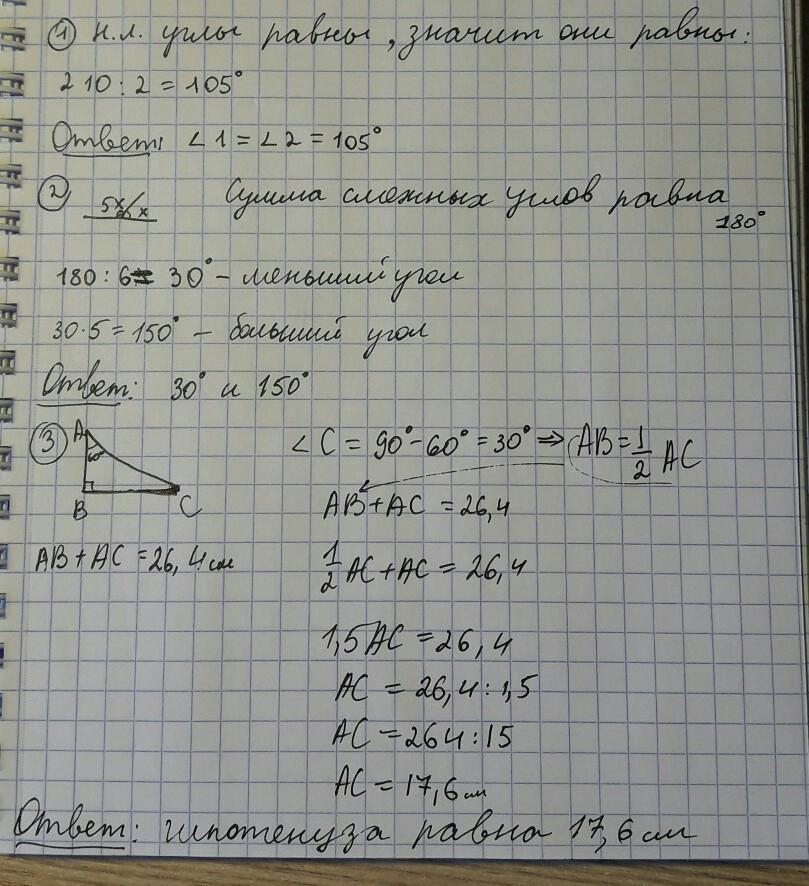 1 Н.л. углы равны, значит они равны:
210:2=105°
Ответ: ∠1=∠2=105°
2 5x x Сумма смежных углов равна
180°
180:6=30° - меньший угол
30·5=150° - больший угол
Ответ: 30° и 150°
3 A 60° B C
∠C = 90°-60°=30° ⇒ AB=1/2 AC
AB+AC =26,4
AB+AC=26,4 см
1/2 AC+AC=26,4
1,5AC=26,4
AC = 26,4:1,5
AC =264:15
AC =17,6 см
Ответ: гипотенуза равна 17,6 см